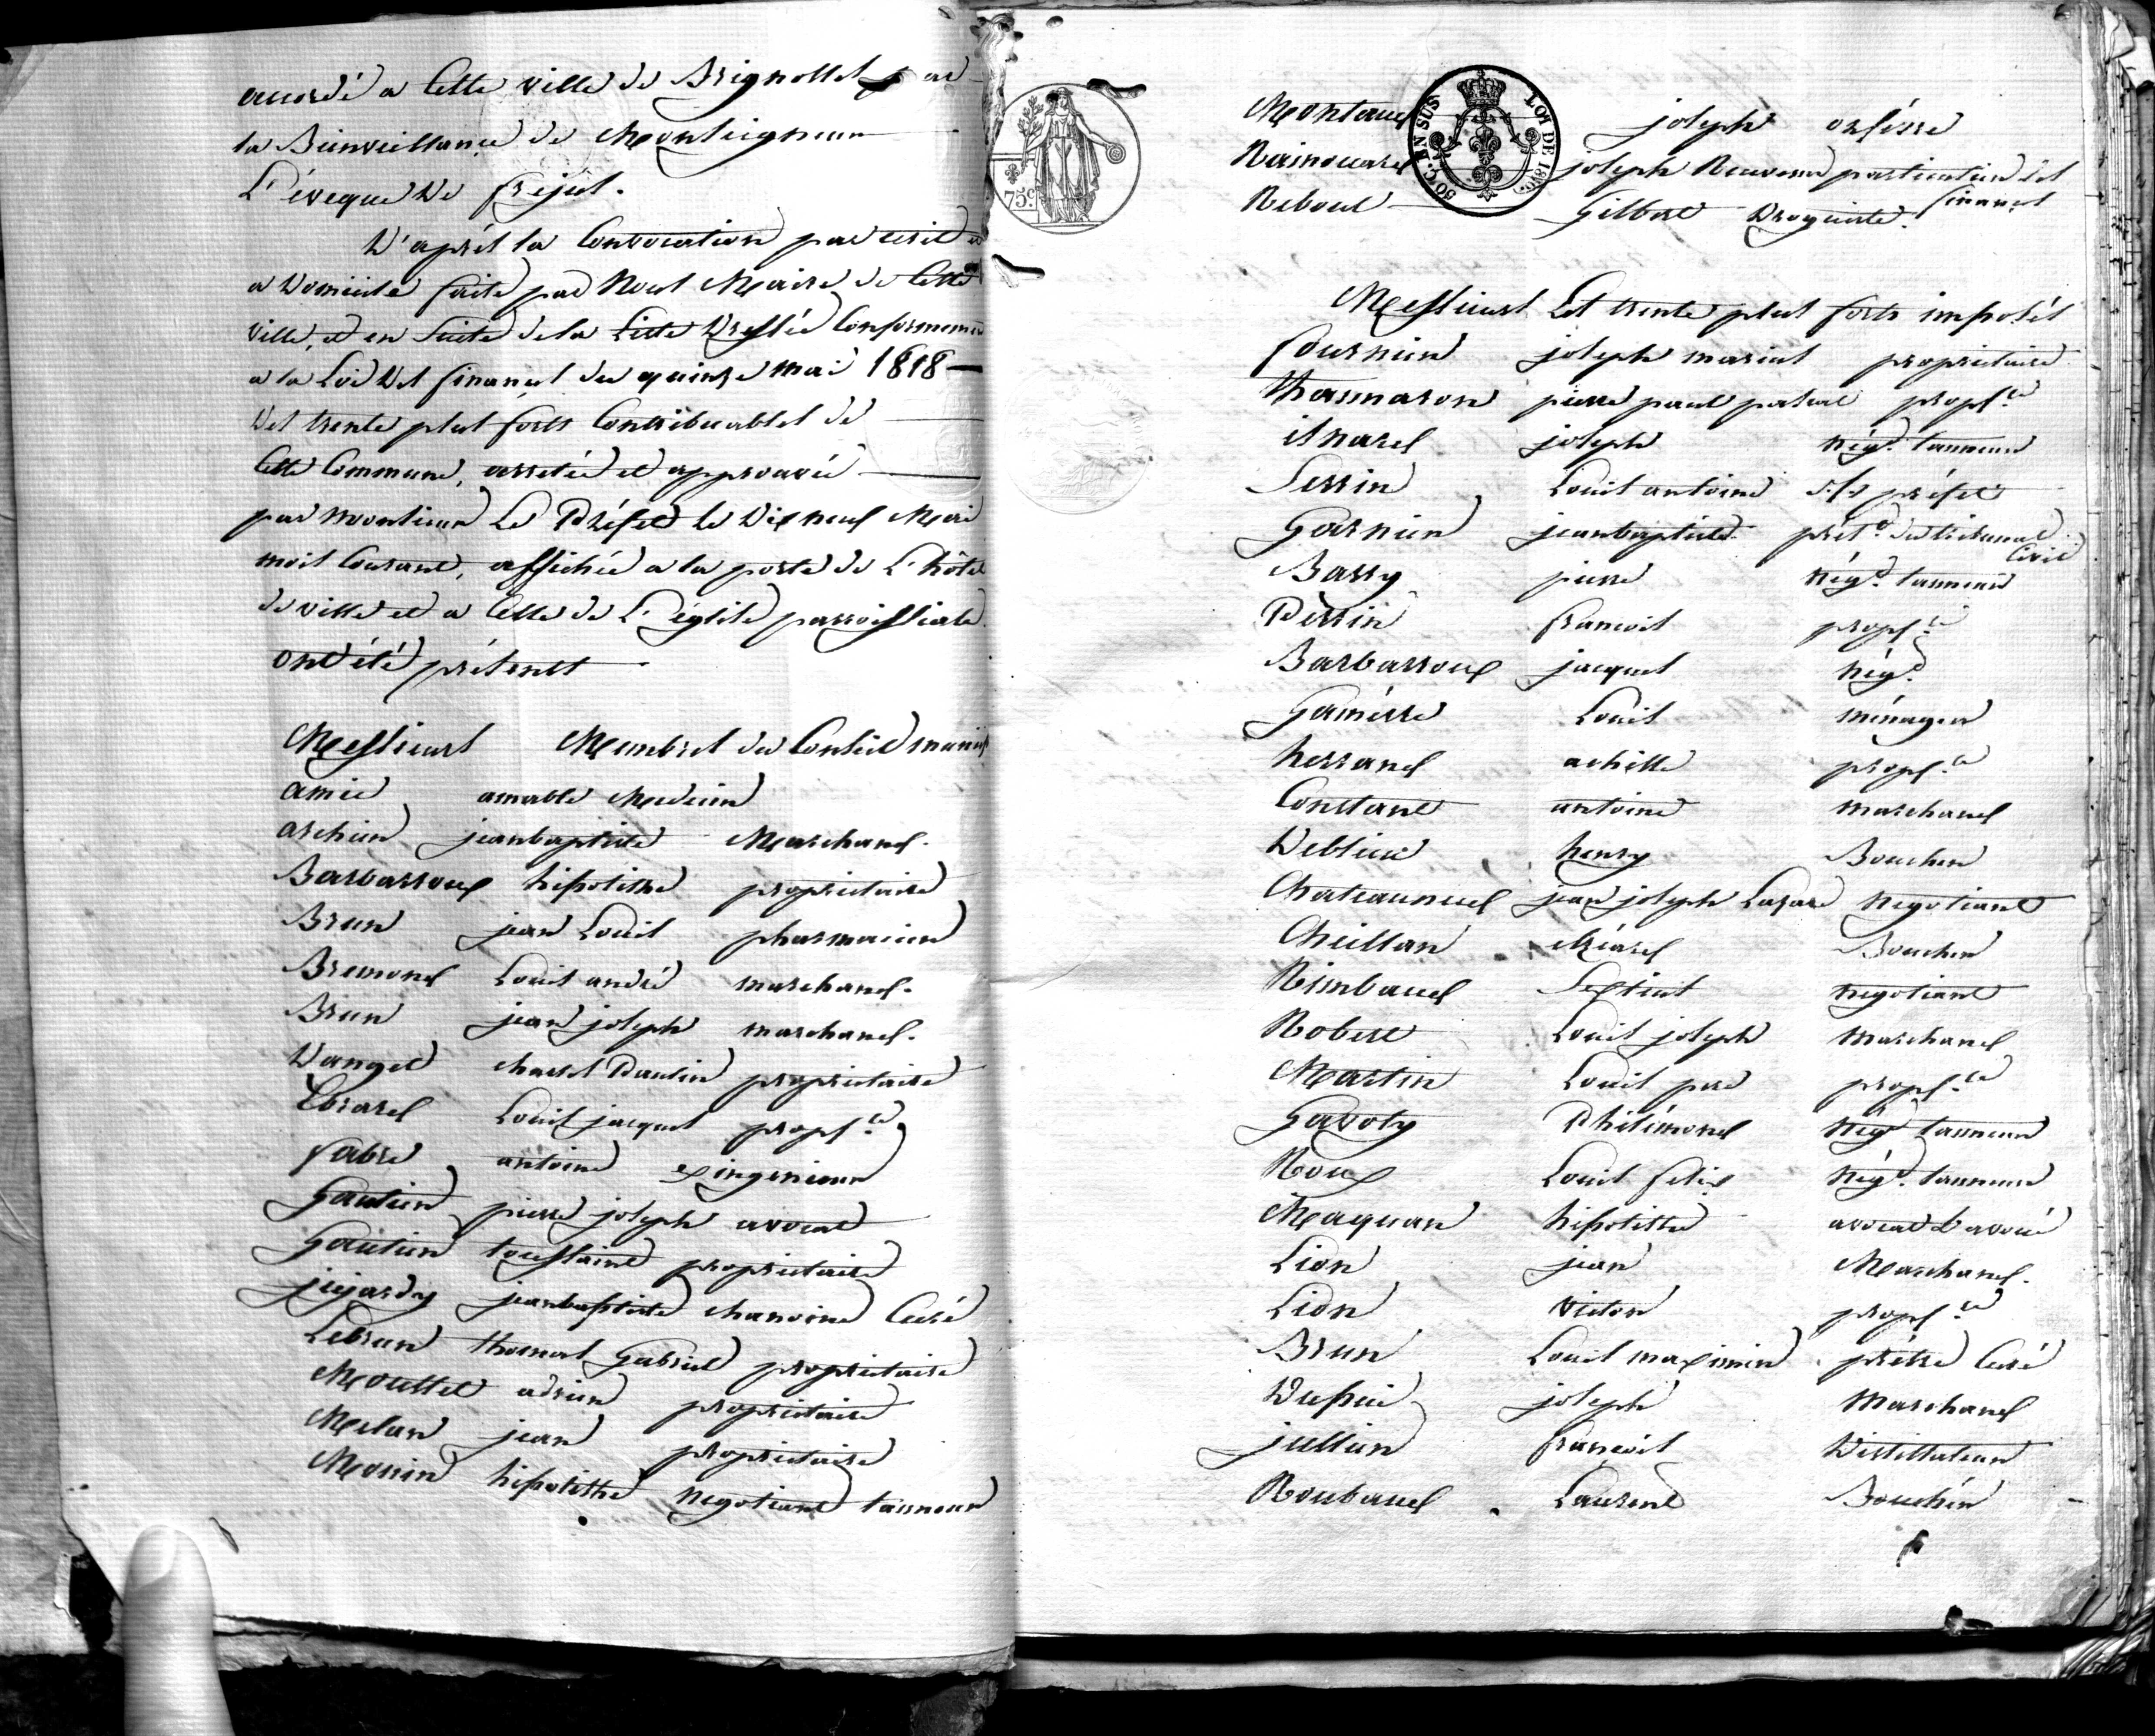 accordé a Cette ville de Brignolles par
la Bienveillance de Monseigneur
L'évêque De frejus.
D'après la Convocation par écrit et
a Domicile faite par Nous Maire de Cette
ville, et en suite de la Liste Dressée Conformement
a la Loi Des finances du quinze mai 1818
Des trente plus forts Contribuables de
Cette Commune, arretée et approuvée
par monsieur Le Préfet le Dix neuf Mai
mois Courant, affichée a la porte de L'hôtel
de ville et a Celle de L'église parroissiale.
ont été présents
Messieurs Membres du Conseil munip
amic amable Medecin
archier jeanbaptiste Marchand.
Barbarroux hipolitte proprietaire
Brun jean Louis pharmacien
Bremond Louis andré marchand.
Brun jean joseph marchand.
Danget charles Paulin proprietaire
Ebrard Louis jacques prop.re
fabre antoine ex ingenieur
Gautier pierre joseph avocat
Gautier toussaint proprietaire
jujardy jeanbaptiste chanoine Curé
Lebrun thomas Gabriel proprietaire
Mouttet adrien proprietaire
Meslan jean proprietaire
Monin hipolitte negotiant tanneur
75c
50 C. EN SUS
LOI DE 1816.
Montaud joseph orfévre
Rainouard joseph Receveur particulier des
finances
Reboul Gilbert Droguiste.
Messieurs Les trente plus forts imposés
fournier joseph marius proprietaire
thaumaron pierre paul pascal prop.re
isnard joseph nég.t tanneur
Perrin Louis antoine s/s préfet
Garnier jeanbaptiste prés.t du tribunal
Civil
Barry pierre nég.t tanneur
Perrin francois prop.re
Barbarroux jacques nég.t
Gamérre Louis ménager
herrand achille prop.re
Constant antoine marchand
Deblieu henry Boucher
Chateauneuf jean joseph Lazare negotiant
Cheillan eléard Boucher
Rimbaud Sextius negotiant
Robert Louis joseph marchand
Martin Louis pere prop.re
Gavoty Philémond nég.t tanneur
Roux Louis felix nég.t tanneur
Maquan hipolitte avocat & avoué
Lion jean Marchand.
Lion victor prop.re
Brun Louis maximin prêtre Curé
Dupui joseph Marchand
jullien francois Distillateur
Roubaud Laurent Boucher